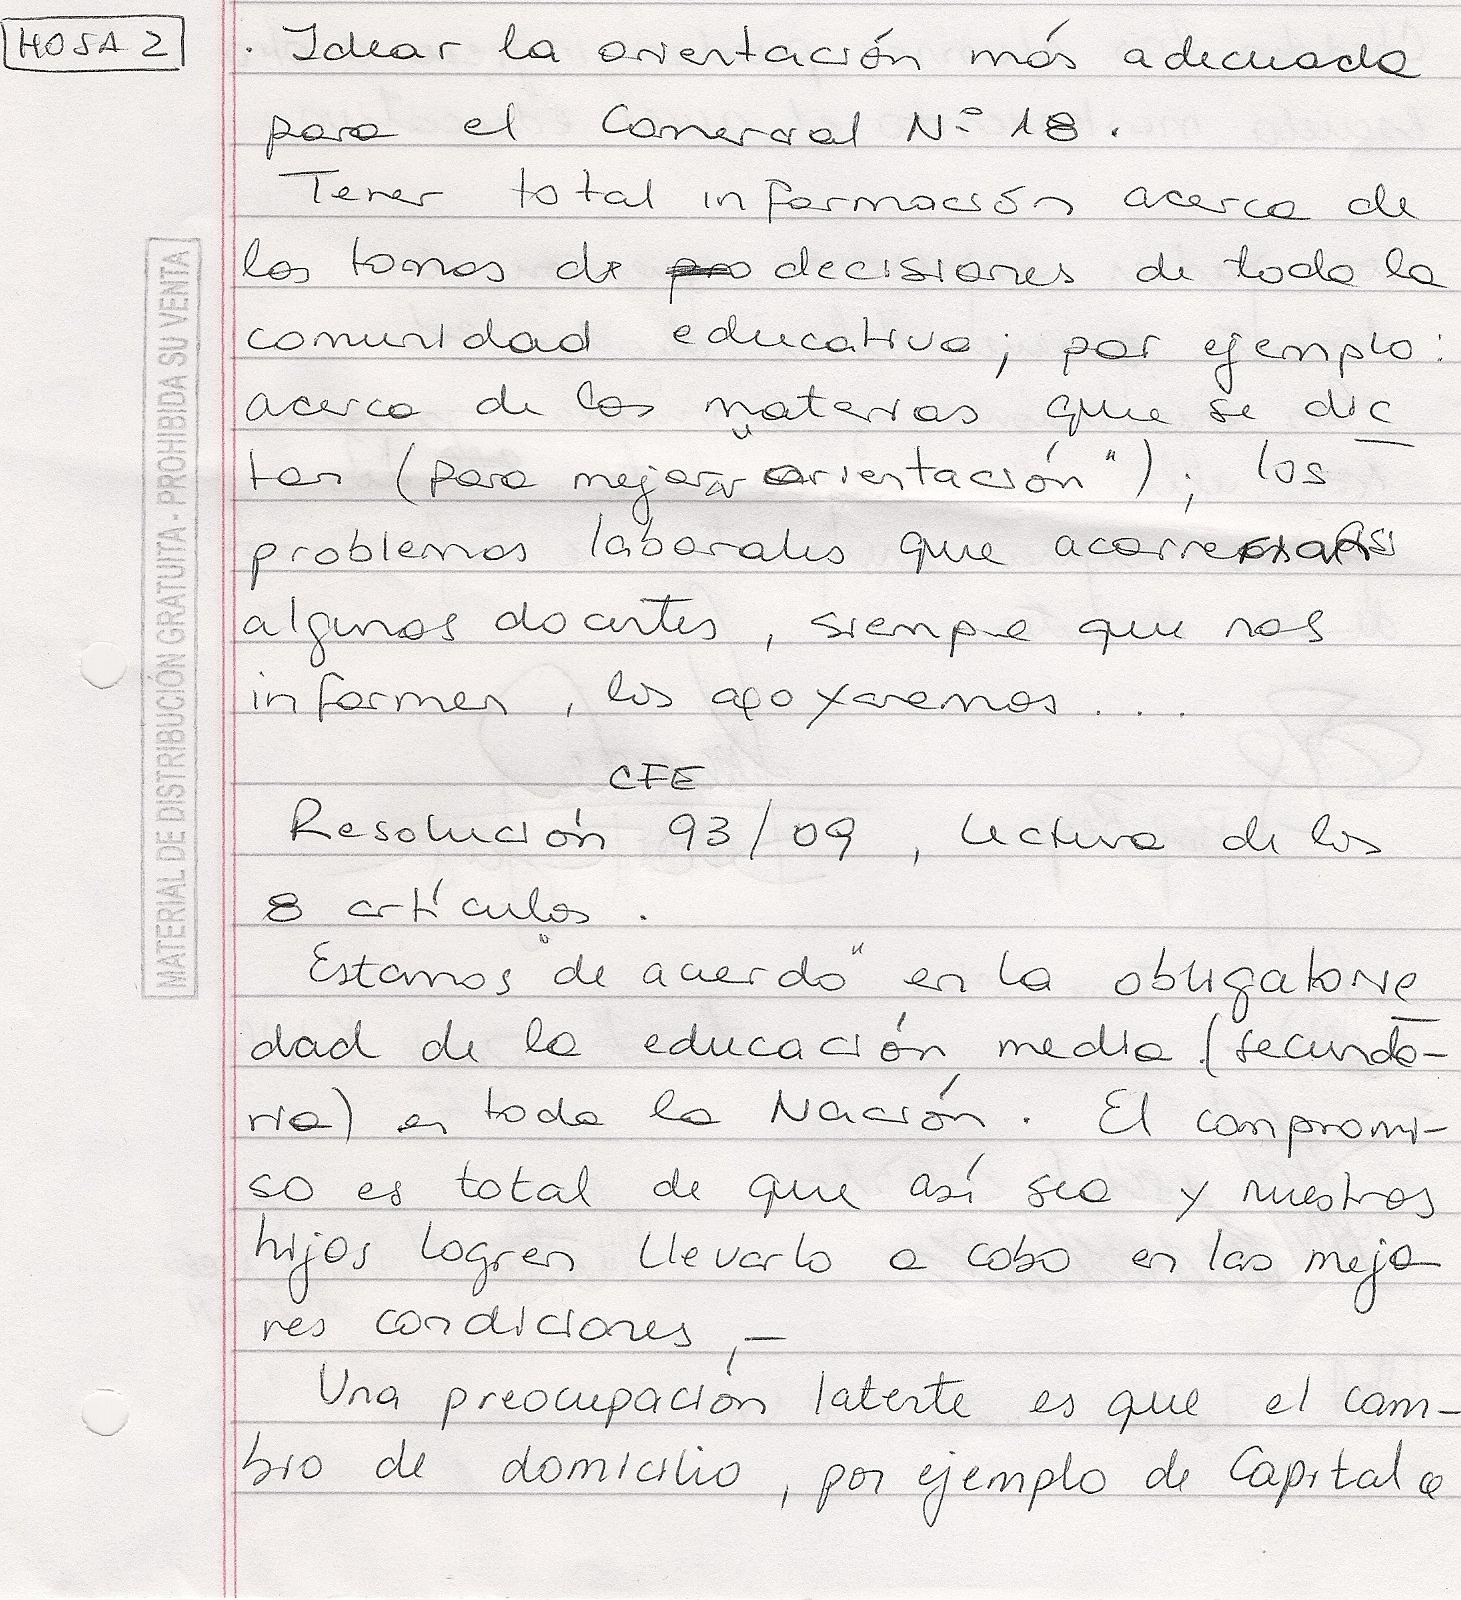 HOJA 2
. Idear la orientación más adecuada
para el Comercial Nº 18.
Tener total información acerca de
las tomas de decisiones de toda la
comunidad educativa; por ejemplo:
acerca de las materias que se dic
tan (para mejorar "orientación"); los
problemas laborales que
algunos docentes, siempre que nos
informen, los apoyaremos...
CFE
Resolución 93/09, lectura de los
8 artículos.
Estamos "de acuerdo" en la obligatorie
dad de la educación media (secunda-
ria) en toda la Nación. El compromi-
so es total de que así sea y nuestros
hijos logren llevarlo a cabo en las mejo
res condiciones,-
Una preocupación latente es que el cam-
bio de domicilio, por ejemplo de Capital a
MATERIAL DE DISTRIBUCIÓN GRATUITA - PROHIBIDA SU VENTA